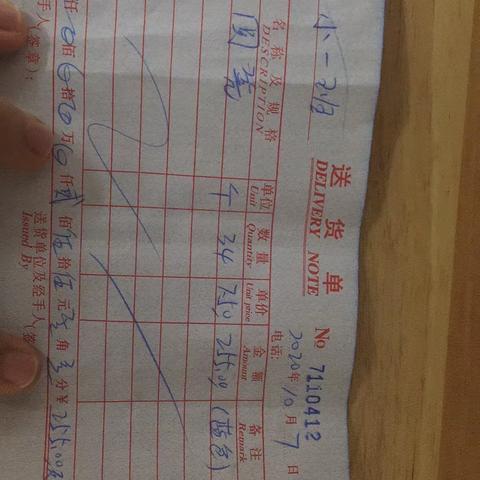 送货单
DELIVERY NOTE
No 7110412
电话:
2020年10月7日
名称及规格 单位 数量 单价 金额 备注
DESCRIPTION Unit Quantity Unit price Amount Remark
个 34 750 255.00 (蓝色)
仟 佰 拾 万 仟贰佰伍拾伍元 角 分¥255.00
手人(签章): 送货单位及经手人(签
Issued By